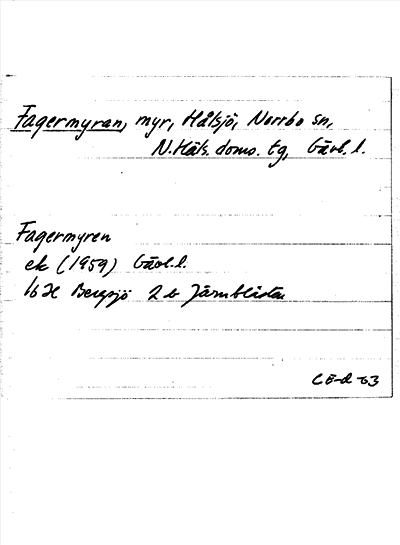 Fagermyran, myr, Hålsjö, Norrbo sn,
N.Häls. doms. tg, Gävl. l.
Fagermyren
ek (1959) Gävl. l.
16 H Bergsjö 2 b Järnblästen
CE-d -63